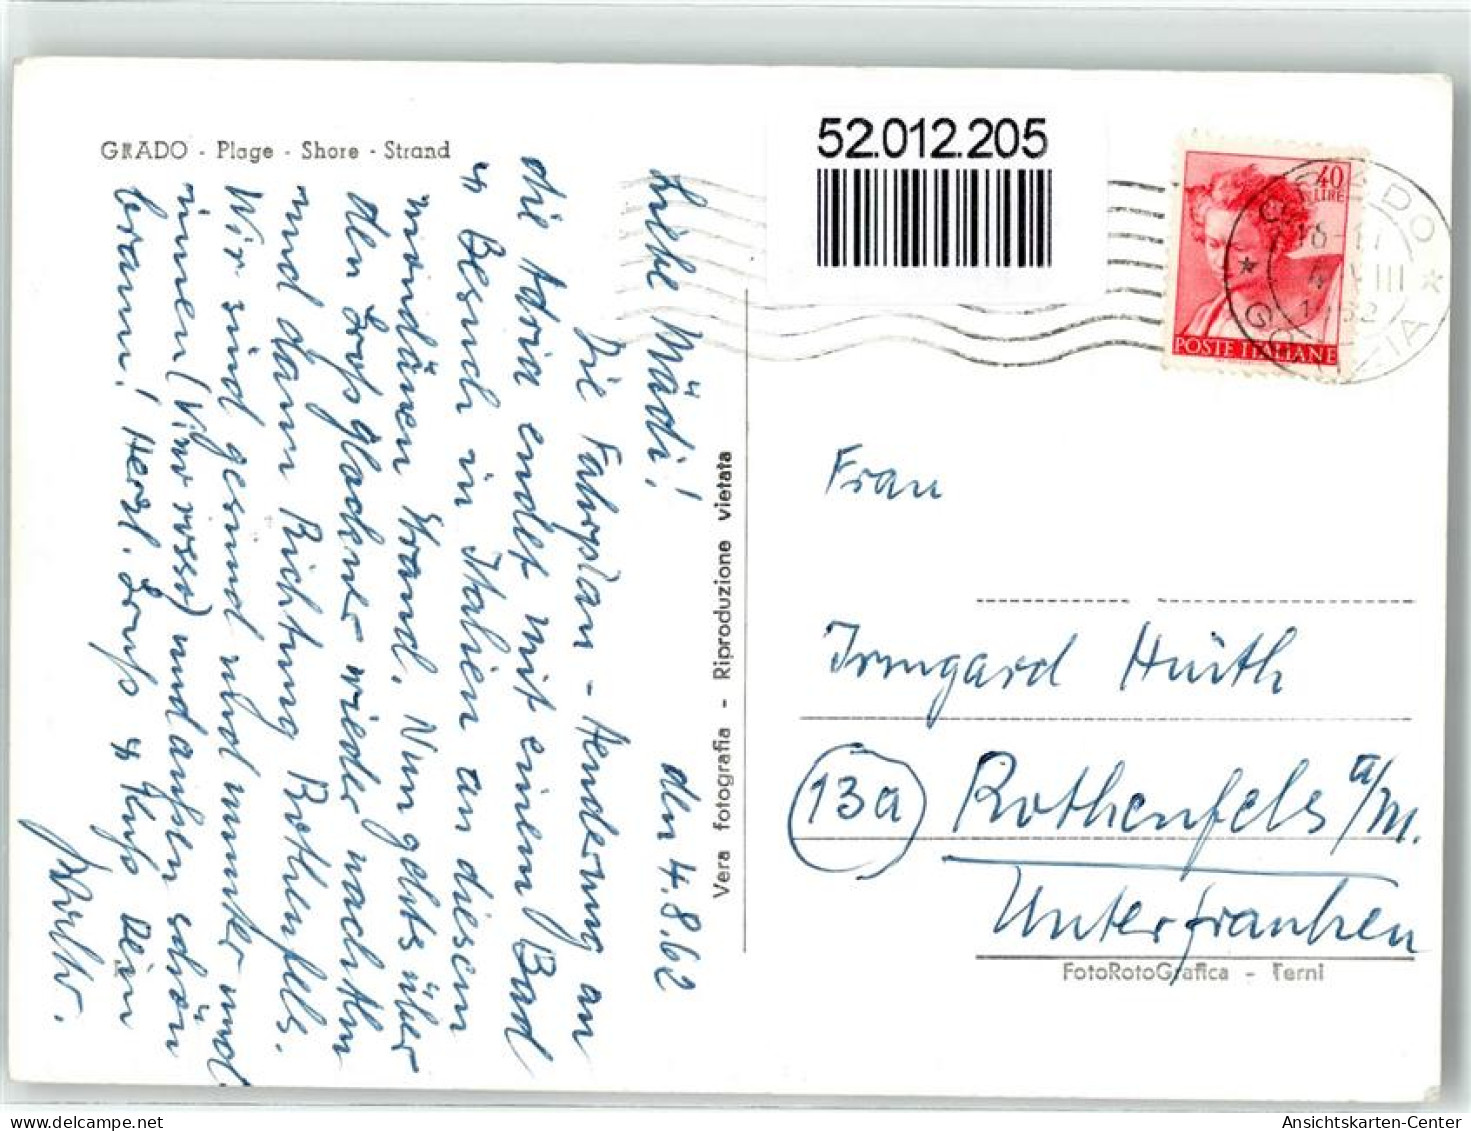 GRADO - Plage - Shore - Strand
52.012.205
40
LIRE
POSTE ITALIANE
GRADO
GORIZIA
16-17
4 VIII
den 4.8.62
Liebe Mädi!
Die Fahrplan-Aenderung an
die Adria endet mit einem Bad
& Besuch in Italien an diesem
mondänen Strand. Nun gehts über
den Großglockner wieder nachhm
und dann Richtung Rothenfels.
Wir sind gesund und munter und
innen (Vino rosso) und außen schön
braun! Herzl. Gruß & Kuß Dein
Vera fotografia - Riproduzione vietata
Frau
Irmgard Huth
13a Rothenfels a/M.
Unterfranken
FotoRotoGrafica - Terni
Ansichtskarten-Center